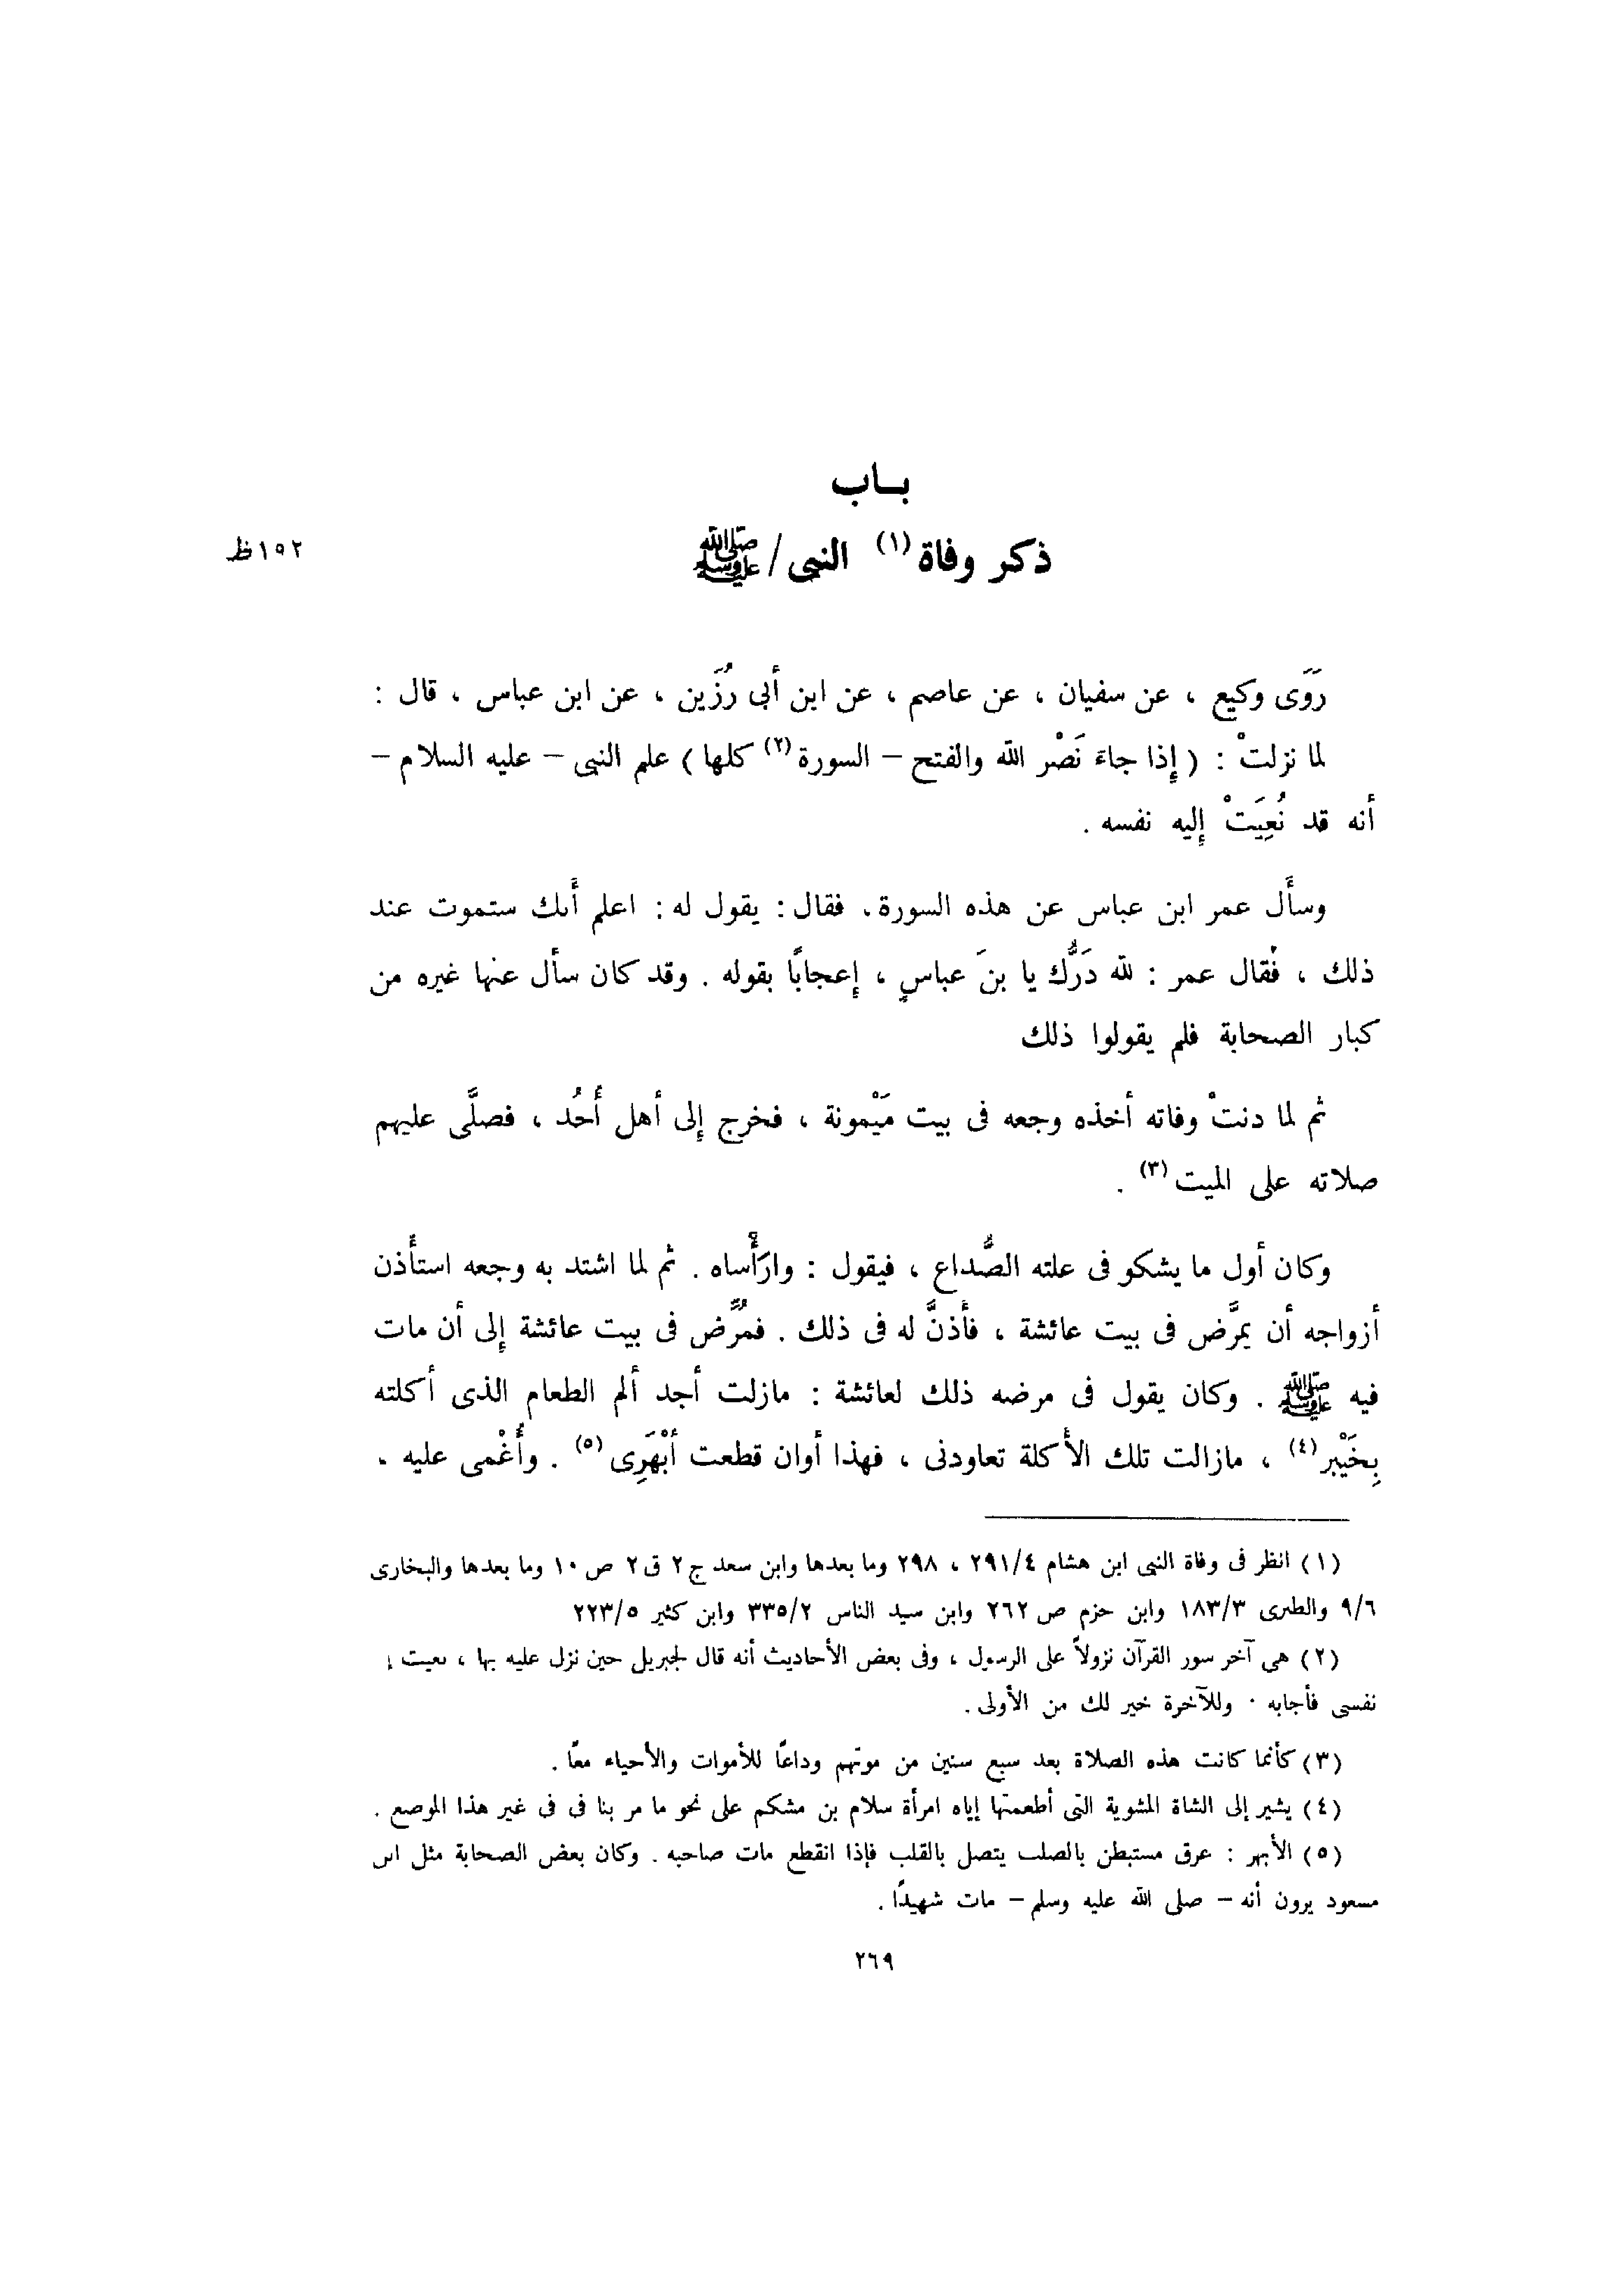 بـاب
ذكر وفاة (١) النبى / ﷺ
١٥٢ظ
رَوَى وكيع ، عن سفيان ، عن عاصم ، عن ابن أبى رُزَين ، عن ابن عباس ، قال :
لما نزلتْ : ( إذا جاءَ نَصْر الله والفتح – السورة (٢) كلها ) علم النبى – عليه السلام –
أنه قد نُعِيَتْ إليه نفسه .
وسأَل عمر ابن عباس عن هذه السورة، فقال : يقول له : اعلم أَنك ستموت عند
ذلك ، فقال عمر : لله دَرُّك يا بنَ عباسٍ ، إعجابًا بقوله . وقد كان سأل عنها غيره من
كبار الصحابة فلم يقولوا ذلك
ثم لما دنتْ وفاته أخذه وجعه فى بيت مَيْمونة ، فخرج إلى أهل أُحُد ، فصلَّى عليهم
صلاته على الميت (٣) .
وكان أول ما يشكو فى علته الصُّداع ، فيقول : وارَأْساه . ثم لما اشتد به وجعه استأْذن
أزواجه أن يمرَّض فى بيت عائشة ، فأَذنَّ له فى ذلك . فمُرِّض فى بيت عائشة إلى أن مات
فيه ﷺ . وكان يقول فى مرضه ذلك لعائشة : مازلت أجد ألم الطعام الذى أكلته
بِخَيْبر (٤) ، مازالت تلك الأكلة تعاودنى ، فهذا أوان قطعت أبْهَرِى (٥) . وأُغْمى عليه ،
(١) انظر فى وفاة النبى ابن هشام ٢٩١/٤ ، ٢٩٨ وما بعدها وابن سعد ج ٢ ق ٢ ص ١٠ وما بعدها والبخارى
٩/٦ والطبرى ١٨٣/٣ وابن حزم ص ٢٦٢ وابن سيد الناس ٣٣٥/٢ وابن كثير ٢٢٣/٥
(٢) هى آخر سور القرآن نزولاً على الرسول ، وفى بعض الأحاديث أنه قال لجبريل حين نزل عليه بها ، نعيت
نفسى فأجابه · وللآخرة خير لك من الأولى .
(٣) كأنما كانت هذه الصلاة بعد سبع سنين من موتهم وداعًا للأموات والأحياء معًا .
(٤) يشير إلى الشاة المشوية التى أطعمتها إياه امرأة سلام بن مشكم على نحو ما مر بنا فى فى غير هذا الموضع .
(٥) الأبهر : عرق مستبطن بالصلب يتصل بالقلب فإذا انقطع مات صاحبه . وكان بعض الصحابة مثل ابن
مسعود يرون أنه – صلى الله عليه وسلم – مات شهيدًا .
٢٦٩